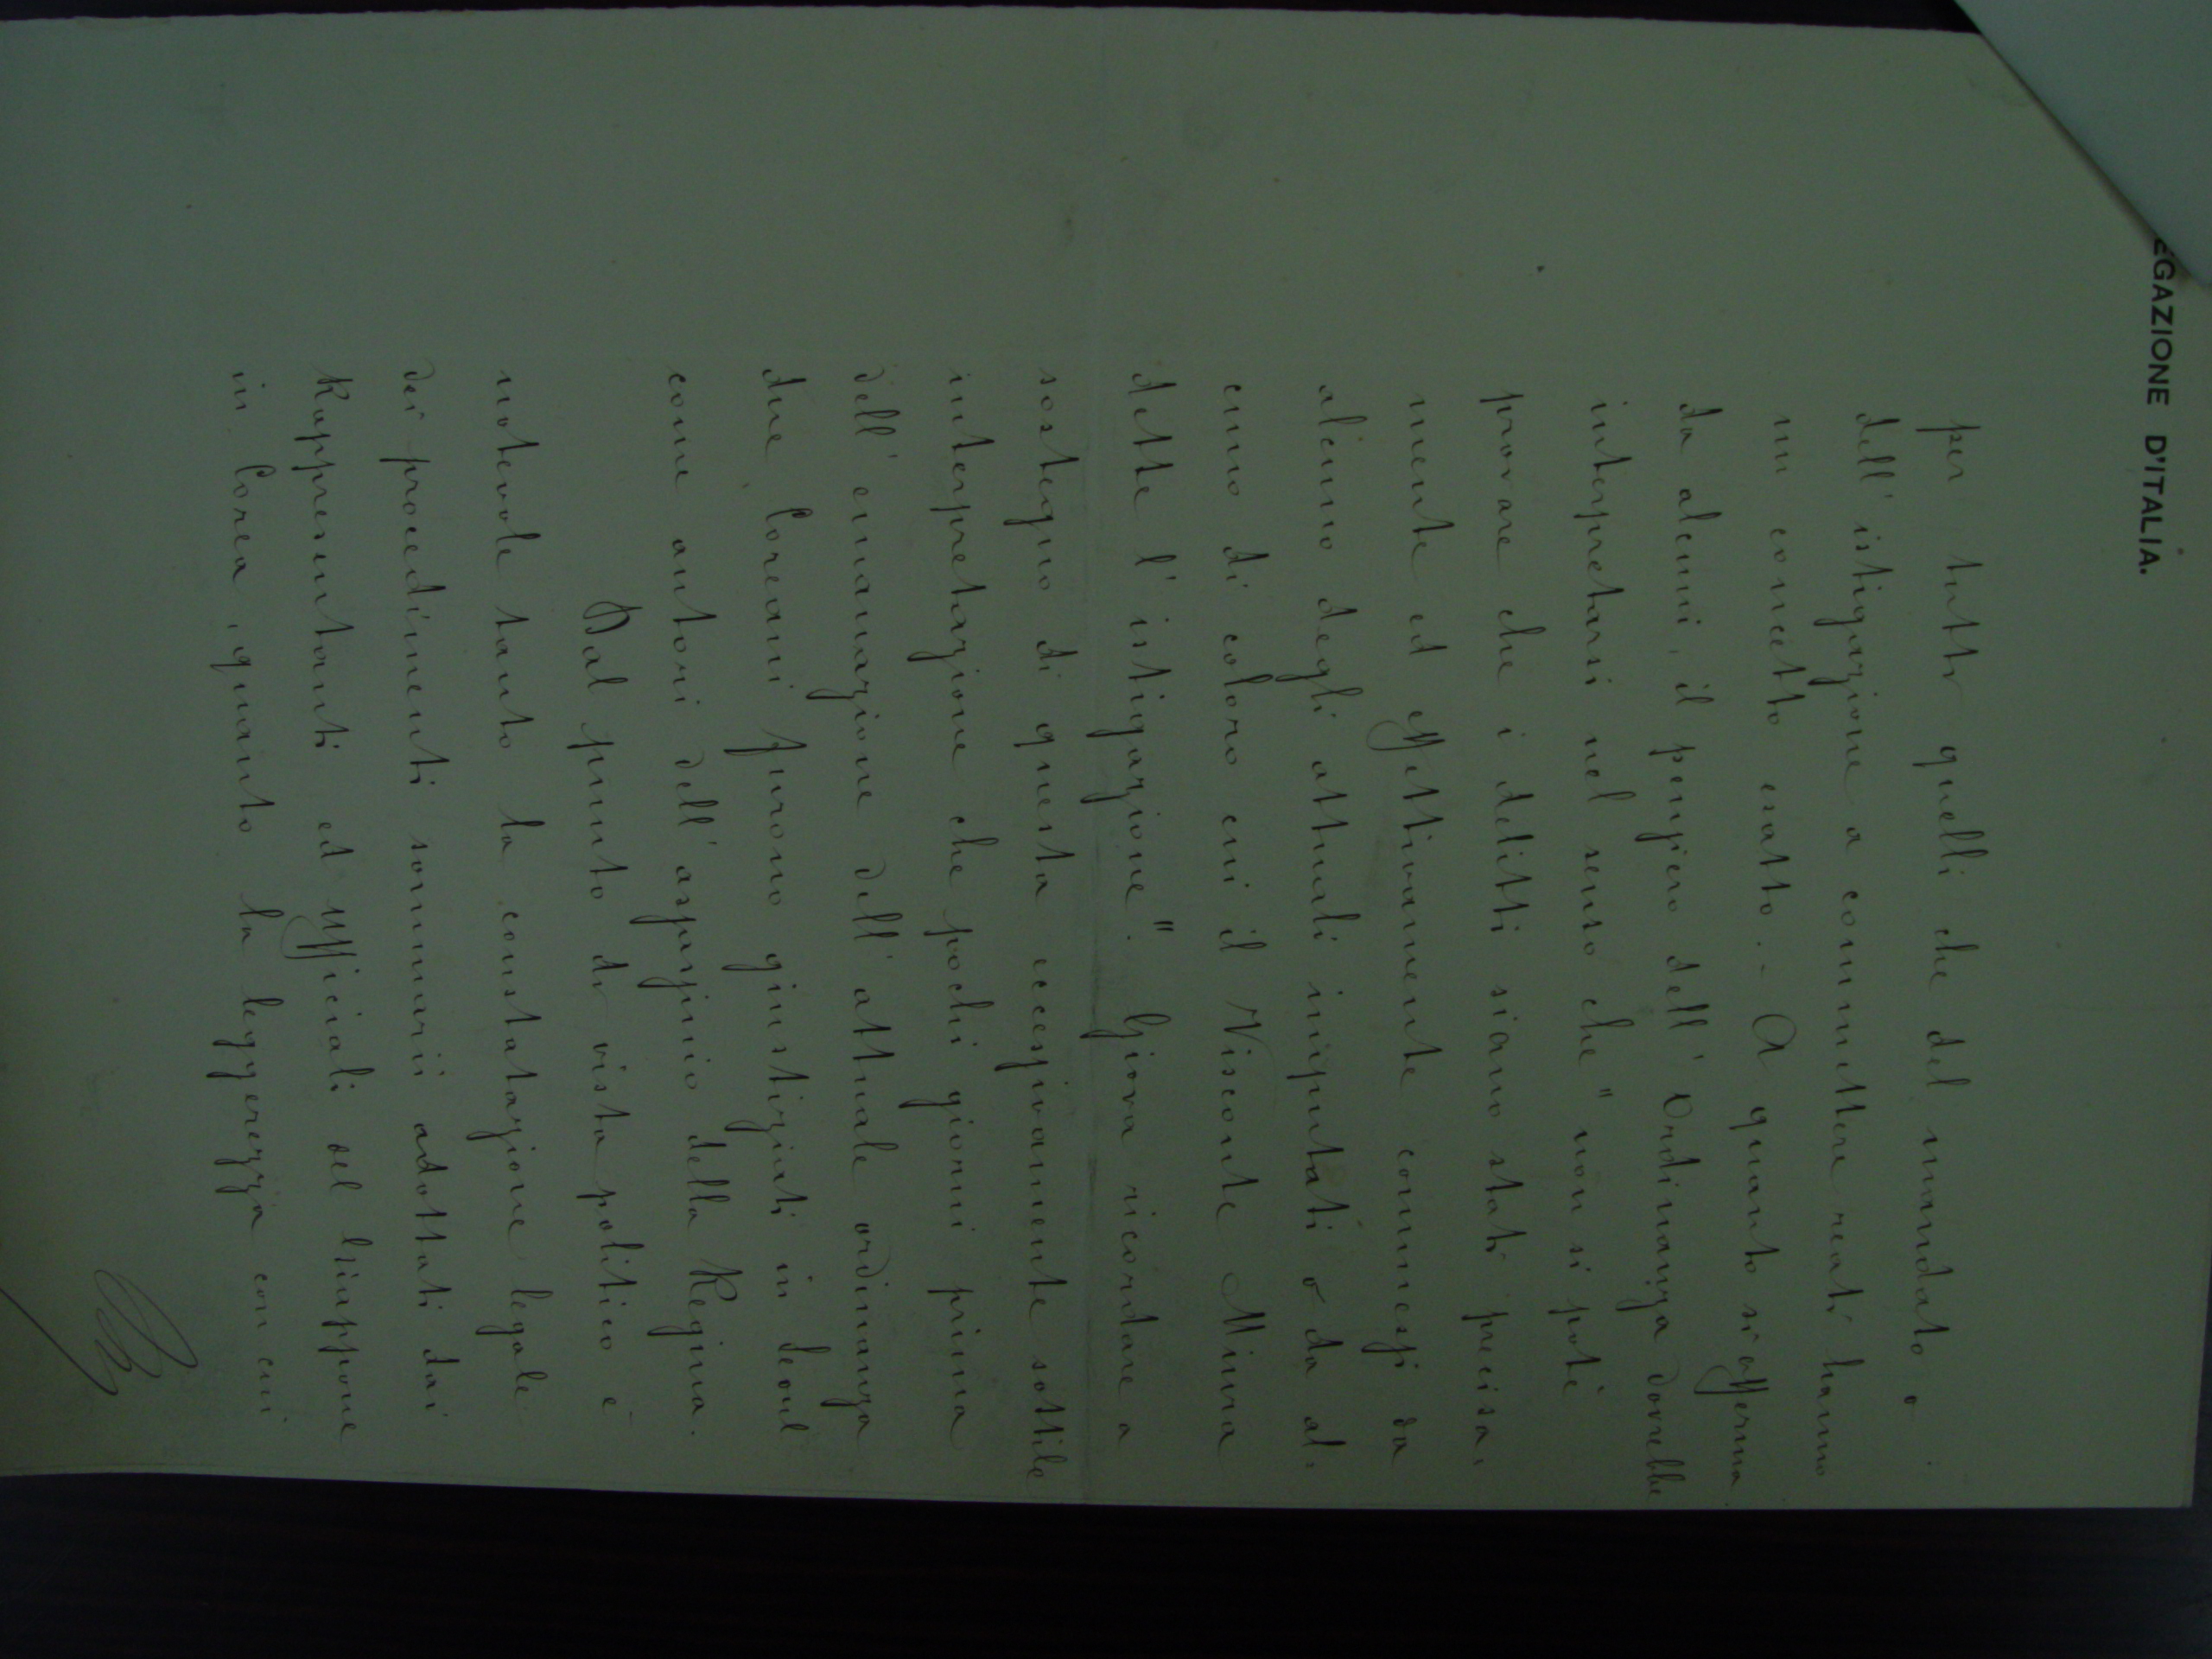 EGAZIONE D'ITALIA.
per tutti quelli che del mandato o
dell' istigazione a commettere reati hanno
un concetto esatto. - A quanto si afferma
da alcuni, il pensiero dell' Ordinanza dovrebbe
interpretarsi nel senso che "non si potè
provare che i delitti siano stati precisa-
mente ed effettivamente commessi da
alcuno degli attuali imputati o da al-
cuno di coloro cui il Visconte Miura
dette l' istigazione". Giova ricordare a
sostegno di questa eccessivamente sottile
interpretazione che pochi giorni prima
dell' emanazione dell' attuale ordinanza
due Coreani furono giustiziati in Seoul
come autori dell' assassinio della Regina.
Dal punto di vista politico è
notevole tanto la constatazione legale
dei procedimenti sommarii adottati dai
Rappresentanti ed Ufficiali del Giappone
in Corea, quanto la leggerezza con cui